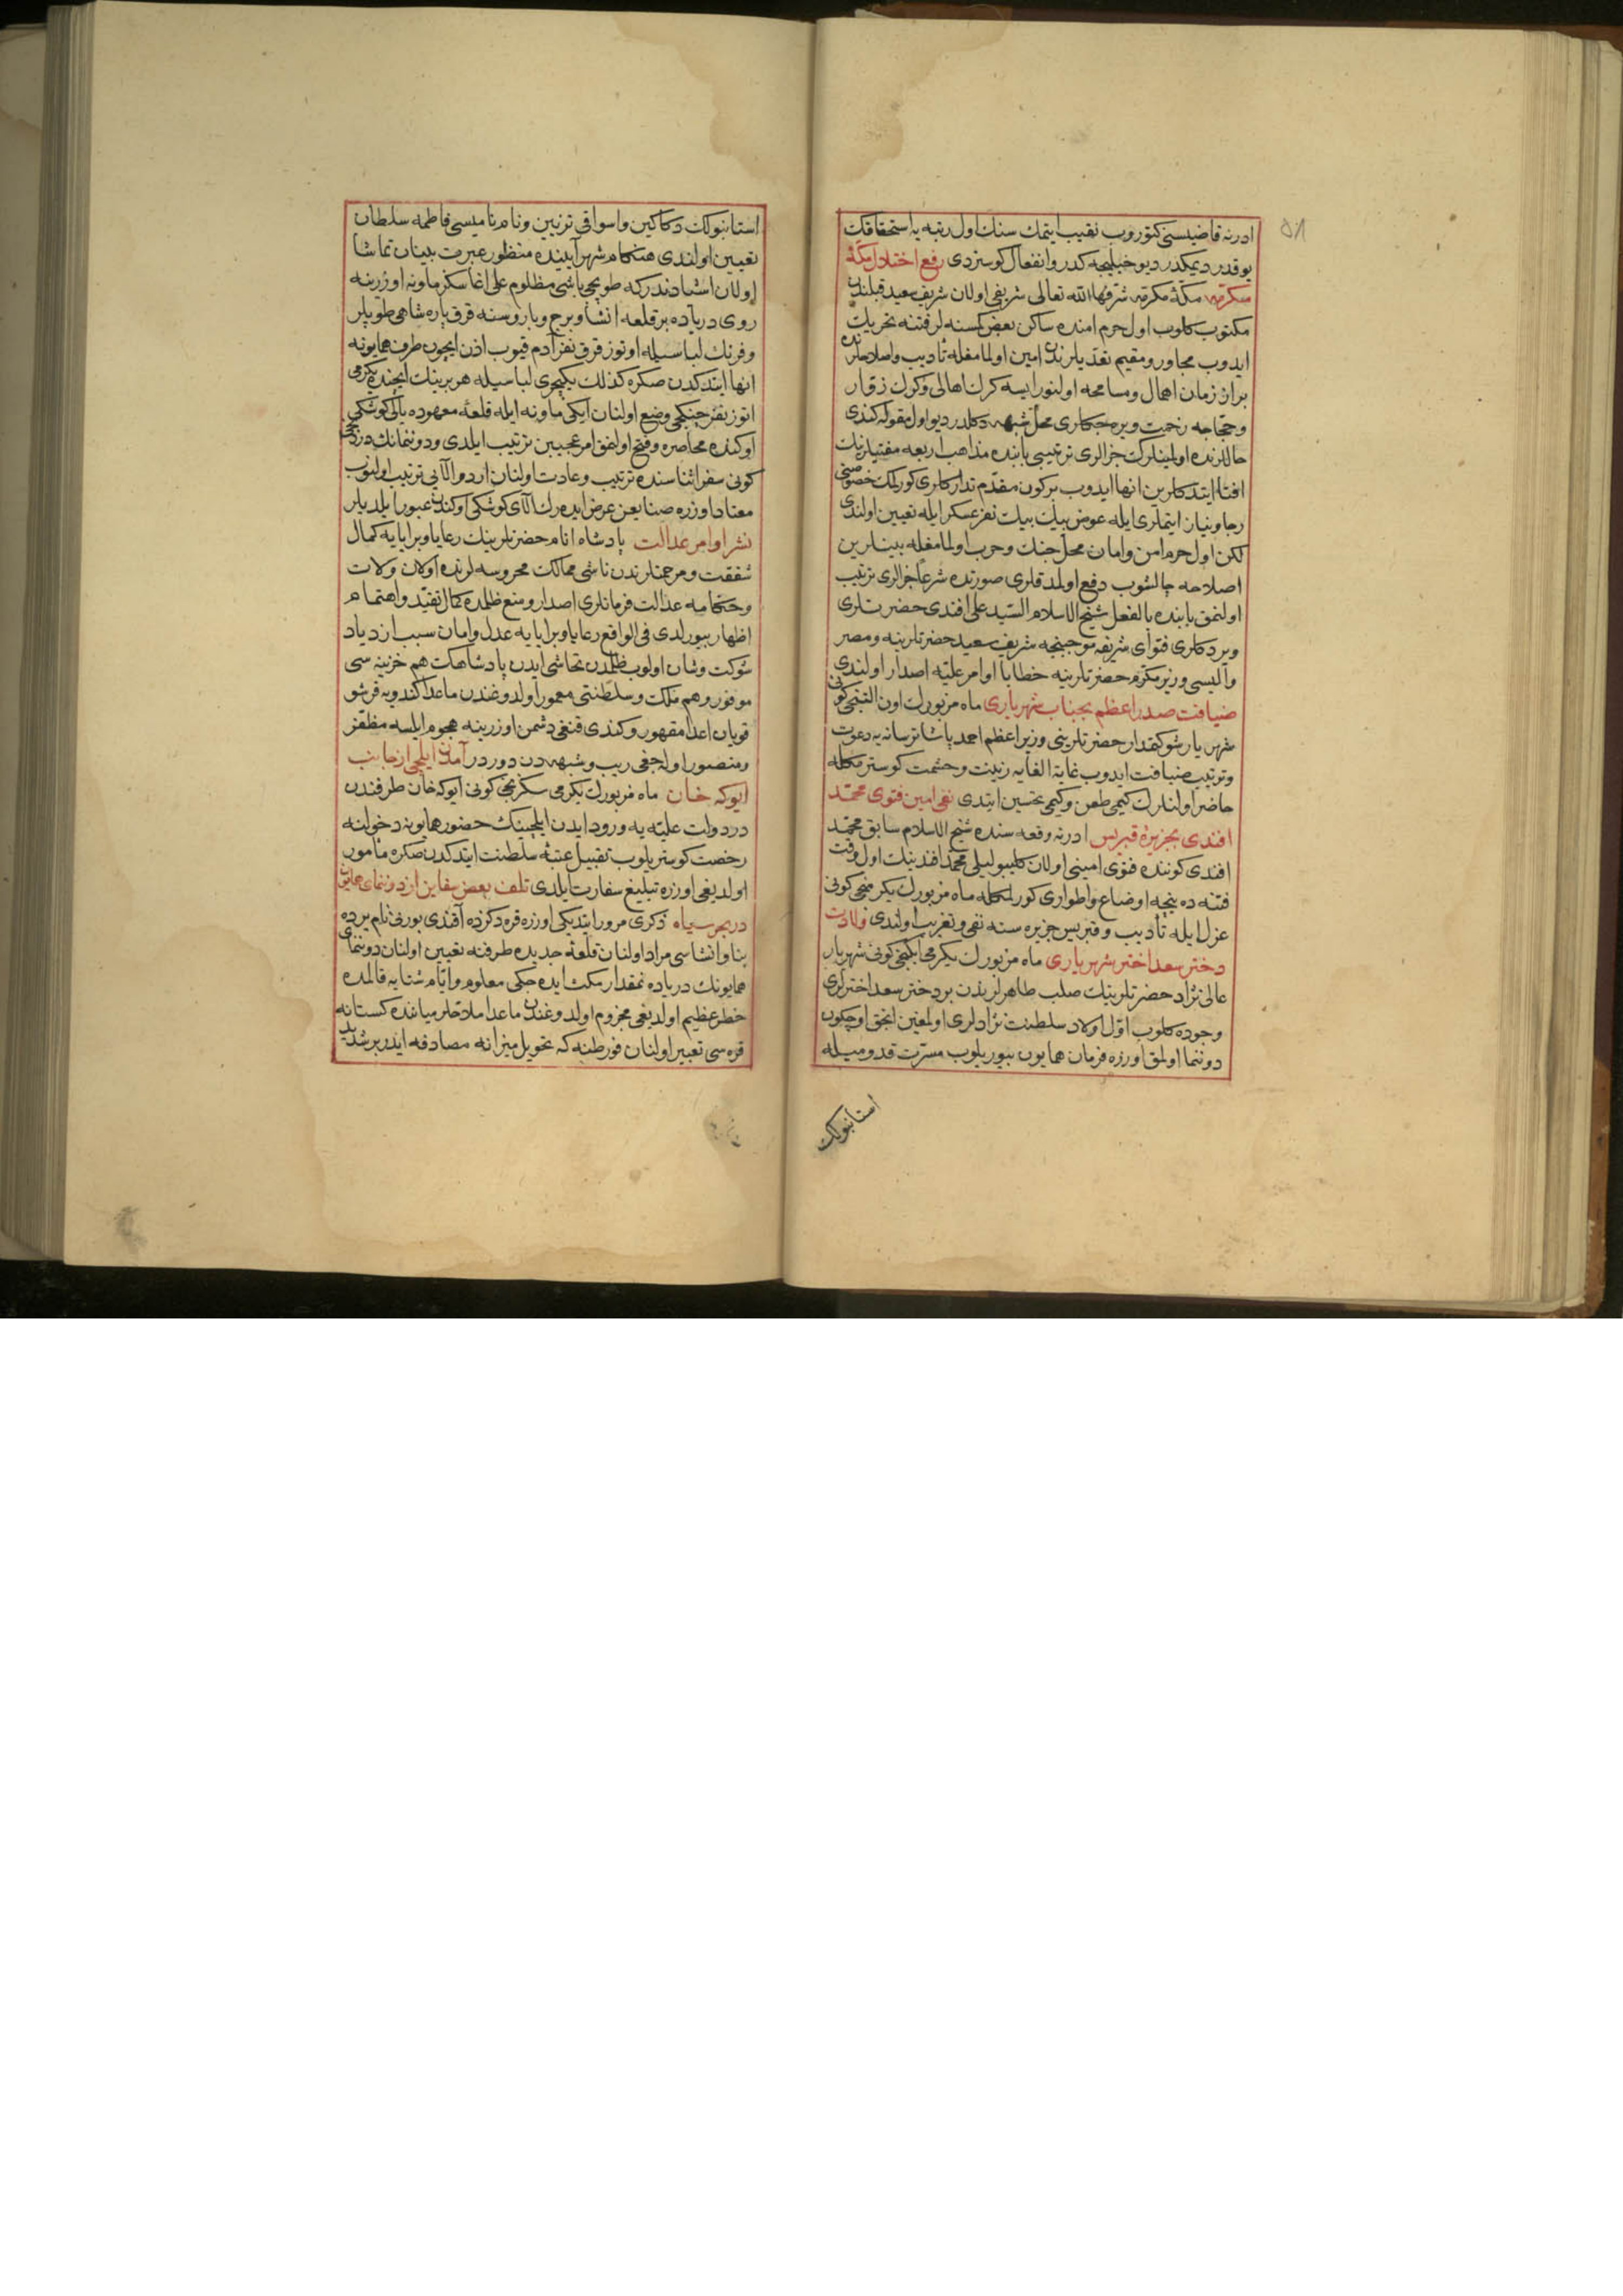 ٥٨
ادرنه قاضیسنی کتوروب نقیب ایتمك سنك اول رتبه یه استحقاقك
یوقدر دیمکدر دیو خیلیجه کدر و انفعال کوستردی رفع اختلال مكهٔ
مکرمه مكهٔ مكرمه شرفها الله تعالی شریفی اولان شریف سعید قبلندن
مکتوب کلوب اول حرم امنده ساکن بعض کسنه لر فتنه تحریك
ایدوب مجاور و مقیم تعدیلرندن امین اولمامغله تأدیب و اصلاحلرنده
بر آن زمان اهمال و مسامحه اولنور ایسه کرك اهالی و کرك زوّار
و حجاجه زحمت ویره جکلری محل شبهه دکلدر دیو اول مقوله کندی
حاللرنده اولمینلرك جزالری ترتیبی بابنده مذاهب اربعه مفتیلرینك
افتا ایتدکلرین انها ایدوب بر کون مقدم تدارکلری کورلمك خصوصنی
رجا و نیاز ایتملری ایله عوض بیك بیك نفر عسکر ایله تعیین اولندی
لکن اول حرم امن و امان محل جنك و حرب اولمامغله بینلرین
اصلاحه چالشوب دفع اولمدقلری صورتده شرعا جزالری ترتیب
اولنمق بابنده بالفعل شیخ الاسلام السید علی افندی حضرتلری
ویردکلری فتوای شریفه موجبنجه شریف سعید حضرتلرینه و مصر
والیسی وزیر مکرم حضرتلرینه خطابا اوامر علیه اصدار اولندی
ضیافت صدر اعظم بجناب شهریاری ماه مزبورك اون التنجی کونی
شهریار شوکتمدار حضرتلرینی وزیر اعظم احمد پاشا ترسانه یه دعوت
و ترتیب ضیافت ایدوب غایة الغایه زینت و حشمت کوسترمکله
حاضر اولنلرك کیمی طعن و کیمی تحسین ایتدی نفی امین فتوی محمد
افندی بجزیرهٔ قبریس ادرنه وقعه سنده شیخ الاسلام سابق محمد
افندی کوننده فتوی امینی اولان کلیبولیلی محمد افندینك اول وقت
فتنه ده نیجه اوضاع و اطواری کورلمکله ماه مزبورك یکرمنجی کونی
عزل ایله تأدیب و قبریس جزیره سنه نفی و تغریب اولندی ولادت
دختر سعد اختر شهریاری ماه مزبورك یکرمی ایکنجی کونی شهریار
عالی نژاد حضرتلرینك صلب طاهرلرندن بر دختر سعد اخترلری
وجوده کلوب اول اولاد سلطنت نژادلری اولمغین انجق اوچ کون
دوننما اولمق اوزره فرمان همایون بیوریلوب مسرت قدومیله
استانبولك
استانبولك دکاکین و اسواقی تزیین و نام نامیسی فاطمه سلطان
تعیین اولندی هنکام شهر آیینده منظور عبرت بینان تماشا
اولان اشیادندر که طوپچی باشی مظلوم علی اغا سکز ماونه اوزرینه
روی دریاده بر قلعه انشا و برج و باروسنه قرق پاره شاهی طوپلر
و فرنك لباسیله اوتوز قرق نفر آدم قیوب اذن ایچون طرف همایونه
انها ایتدکدن صکره کذلك یکیچری لباسیله هر برینك ایچنده یکرمی
اتوز نفر جنکجی وضع اولنان ایکی ماونه ایله قلعهٔ معهوده یالی کوشکی
اوکنده محاصره و فتح اولنمق امر عجیبین ترتیب ایلدی و دوننمانك دردنجی
کونی سفر اثناسنده ترتیب و عادت اولنان اردو آلایی ترتیب اولنوب
معتاد اوزره صنایعن عرض ایده رك آلای کوشکی اوکندن عبور ایلدیلر
نشر اوامر عدالت پادشاه انام حضرتلرینك رعایا و برایایه کمال
شفقت و مرحمتلرندن ناشی ممالك محروسه لرنده اولان ولات
و حکامه عدالت فرمانلری اصدار و منع ظلمده کمال تقید و اهتمام
اظهار بیورلدی فی الواقع رعایا و برایایه عدل و امان سبب ازدیاد
شوکت و شان اولوب ظلمدن تحاشی ایدن پادشاهك هم خزینه سی
موفور و هم ملکت و سلطنتی معمور اولدوغندن ماعدا کندویه قرشو
قویان اعدا مقهور و کندی قنغی دشمن اوزرینه هجوم ایلسه مظفر
و منصور اوله جغی ریب و شبهه دن دوردر آمدن ایلچی از جانب
ایوکه خان ماه مزبورك یکرمی سکزنجی کونی ایوکه خان طرفندن
در دولت علیه یه ورود ایدن ایلچینك حضور همایونه دخولنه
رخصت کوستریلوب تقبیل عتبهٔ سلطنت ایتدکدن صکره مأمور
اولدیغی اوزره تبلیغ سفارت ایلدی تلف بعض سفاین از دوننمای همایون
در بحر سیاه ذکری مرور ایتدیکی اوزره قره دکزده آقندی بورنی نام یرده
بنا و انشاسی مراد اولنان قلعهٔ جدیده طرفنه تعیین اولنان دوننمای
همایونك دریاده نمقدار مکث ایده جکی معلوم و ایام شتایه قالمده
خطر عظیم اولدیغی مجزوم اولدوغندن ماعدا ملاحلر میاننده کستانه
قره سی تعبیر اولنان فورطنه که تحویل میزانه مصادفه ایدر بر شدید